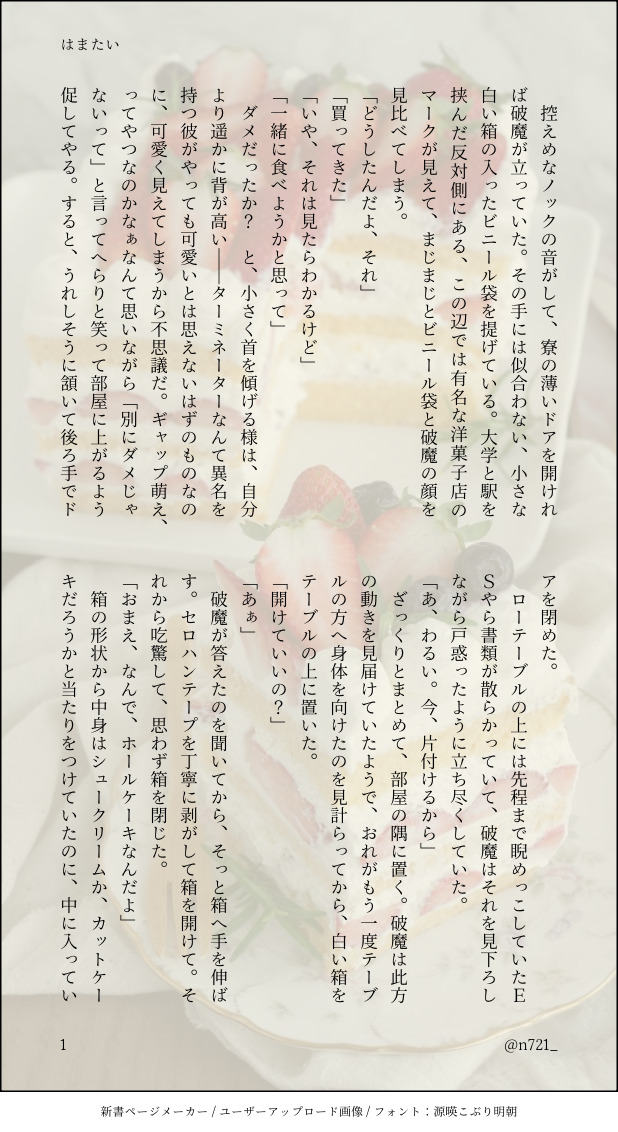 はまたい
　控えめなノックの音がして、寮の薄いドアを開けれ
ば破魔が立っていた。その手には似合わない、小さな
白い箱の入ったビニール袋を提げている。大学と駅を
挟んだ反対側にある、この辺では有名な洋菓子店の
マークが見えて、まじまじとビニール袋と破魔の顔を
見比べてしまう。
「どうしたんだよ、それ」
「買ってきた」
「いや、それは見たらわかるけど」
「一緒に食べようかと思って」
　ダメだったか？　と、小さく首を傾げる様は、自分
より遥かに背が高い――ターミネーターなんて異名を
持つ彼がやっても可愛いとは思えないはずのものなの
に、可愛く見えてしまうから不思議だ。ギャップ萌え、
ってやつなのかなぁなんて思いながら「別にダメじゃ
ないって」と言ってへらりと笑って部屋に上がるよう
促してやる。すると、うれしそうに頷いて後ろ手でド
アを閉めた。
　ローテーブルの上には先程まで睨めっこしていたE
Sやら書類が散らかっていて、破魔はそれを見下ろし
ながら戸惑ったように立ち尽くしていた。
「あ、わるい。今、片付けるから」
　ざっくりとまとめて、部屋の隅に置く。破魔は此方
の動きを見届けていたようで、おれがもう一度テーブ
ルの方へ身体を向けたのを見計らってから、白い箱を
テーブルの上に置いた。
「開けていいの？」
「あぁ」
　破魔が答えたのを聞いてから、そっと箱へ手を伸ば
す。セロハンテープを丁寧に剥がして箱を開けて。そ
れから吃驚して、思わず箱を閉じた。
「おまえ、なんで、ホールケーキなんだよ」
　箱の形状から中身はシュークリームか、カットケー
キだろうかと当たりをつけていたのに、中に入ってい
1
@n721_
新書ページメーカー / ユーザーアップロード画像 / フォント：源暎こぶり明朝